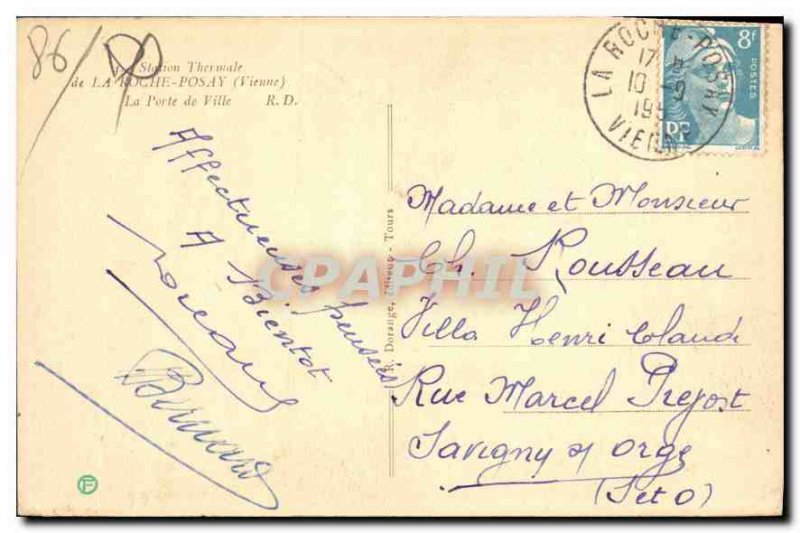 86/
Station Thermale
de LA ROCHE-POSAY (Vienne)
La Porte de Ville R. D.
LA ROCHE-POSAY
17
10 -9
195
VIENNE
8f
POSTES
RF
Affectueuses pensées
A Bientot
Bernard
R. Dorange, éditeur - Tours
Madame et Monsieur
Ch. Rousseau
Villa Henri Claude
Rue Marcel Prevost
Savigny s/ Orge
(S et O)
CPAPHIL
F